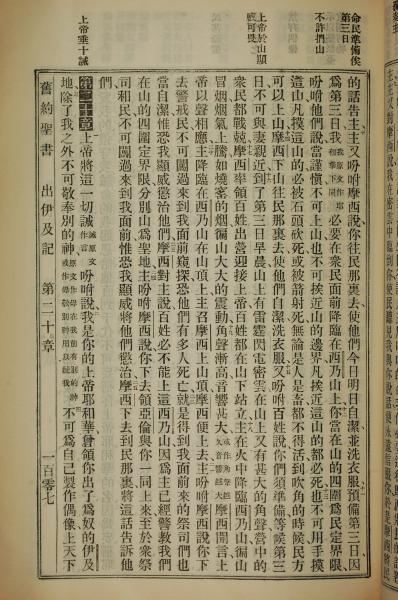 命民準備俟
第三日
不許捫山
上帝於山顯
威可畏
上帝垂十誡
的話告訴主主又吩咐摩西說你往民那裏去使他們今日明日自潔並洗衣服預備第三日因
為第三日我必要在衆民面前降臨在西乃山上你當在山的四圍爲民定界限
吩咐他們說當謹愼不可上山也不可挨近山的邊界凡挨近這山的都必死也不可用手摸
這山凡摸這山的必被石頭砍死或被箭射死無論是人是畜都不得活到吹角的時候民方
可以上山摩西下山往民那裏去使他們自潔洗衣服又吩咐百姓說你們須準備等候第三
日不可與妻親近到了第三日早晨山上有雷霆閃電密雲在山上又有甚大的角聲營中的
衆民都戰兢摩西率領百姓出營迎接上帝百姓都在山下站立主在火中降臨西乃山徧山
冒烟烟氣上騰如燒窰的烟徧山大大的震動角聲漸高音響甚大摩西開言上
帝以聲相應主降臨在西乃山在山頂上主召摩西上山頂摩西便上去主吩咐摩西說你下
去警戒民不可闖過來到我面前窺探恐他們有多人死亡就是得到我面前來的祭司們也
當自潔惟恐我顯威懲治他們摩西對主說百姓必不能上這西乃山因爲主已經警教我們
在山的四圍定界限分別山爲聖地主吩咐摩西說你下去領亞倫與你一同上來至於衆祭
司和民不可闖過來到我面前惟恐我顯威將他們懲治摩西下去到民那裏將這話告訴他
們
第二十章 上帝將這一切誡吩咐說我是你的上帝耶和華曾領你出了爲奴的伊及
地除了我之外不可敬奉別的神不可爲自己製作偶像上天下
舊約聖書 出伊及記 第二十章 一百零七